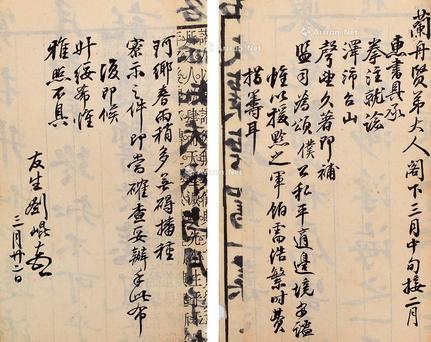 蘭舟賢弟大人閣下三月中旬接二月
惠書具承
拳注就諗
澤沛台山
聲望久著即補
監司為頌僕公私平適邊境安謐
惟以援黔之軍餉需浩繁時費
措籌耳
珂鄉春雨稍多無碍播種
示之件即當確查妥辦手此布
復即候
升綏希惟
雅照不具
友生劉崐
三月廿二日